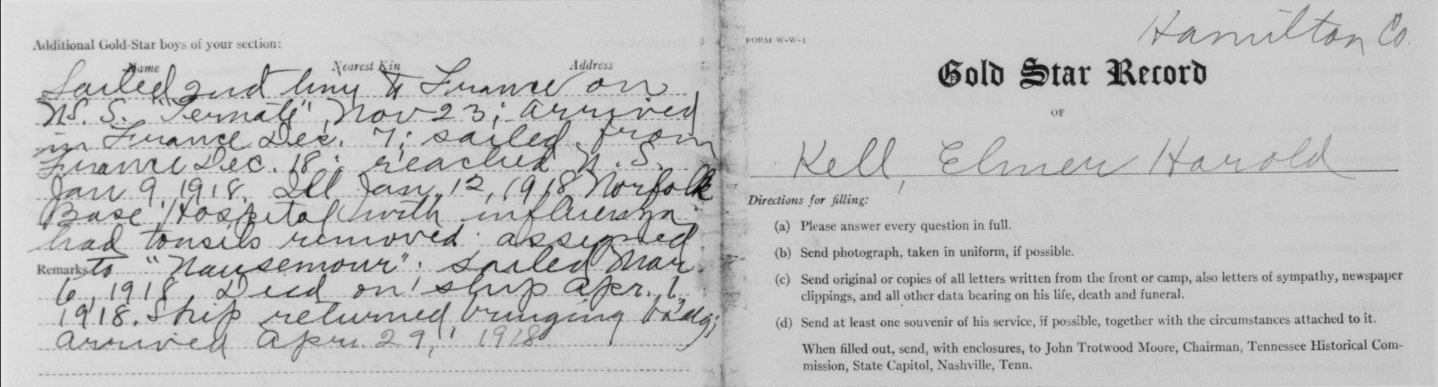 Additional Gold-Star boys of your section:
Name Nearest Kin Address
Sailed 2nd time to France on
U.S.S. "Ternate", Nov 23; arrived
in France Dec. 7; sailed from
France Dec. 18; reached U.S.
Jan 9, 1918. Ill Jan. 12, 1918 Norfolk
Base Hospital with influenza
had tonsils removed: assigned
Remarks to "Nansemour": sailed Mar.
6, 1918. Died on ship Apr. 1,
1918. Ship returned bringing body;
arrived Apr. 29, 1918
FORM W-W-1
Hamilton Co.
Gold Star Record
OF
Kell, Elmer Harold
Directions for filling:
(a) Please answer every question in full.
(b) Send photograph, taken in uniform, if possible.
(c) Send original or copies of all letters written from the front or camp, also letters of sympathy, newspaper
clippings, and all other data bearing on his life, death and funeral.
(d) Send at least one souvenir of his service, if possible, together with the circumstances attached to it.
When filled out, send, with enclosures, to John Trotwood Moore, Chairman, Tennessee Historical Com-
mission, State Capitol, Nashville, Tenn.